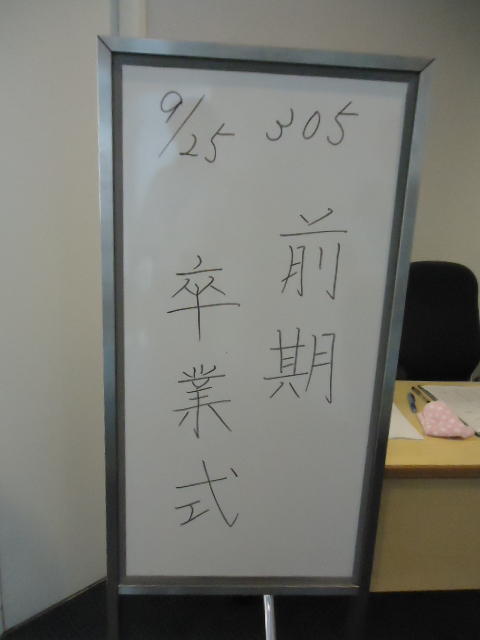 305
前期
9/25
卒業式